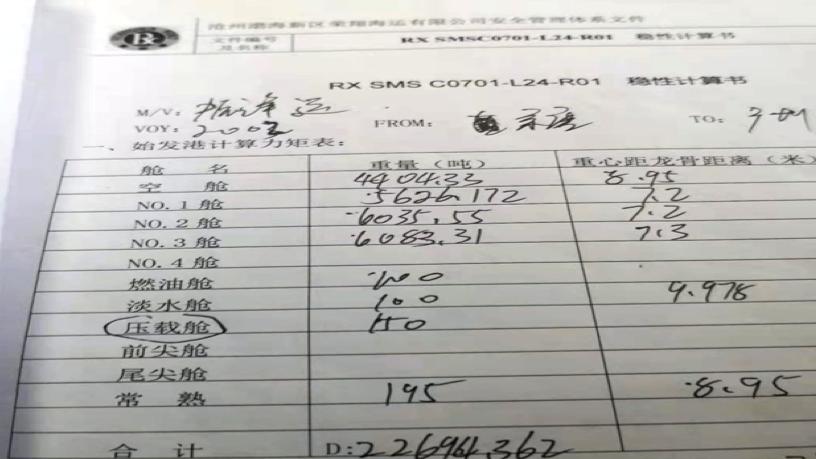 沧州渤海新区荣翔海运有限公司安全管理体系文件
文件编号及名称 RX SMSC0701-L24-R01 稳性计算书
RX SMS C0701-L24-R01 稳性计算书
M/V:
VOY: 2002 FROM: TO:
一、始发港计算力矩表:
舱 名 重量(吨) 重心距龙骨距离(米)
空 舱 4404.33 8.95
NO.1 舱 5626.172 7.2
NO.2 舱 6035.55 7.2
NO.3 舱 6083.31 7.3
NO.4 舱
燃油舱 100 9.978
淡水舱 100
压载舱 150
前尖舱
尾尖舱
常 熟 195 8.95
合 计 D:22694.362